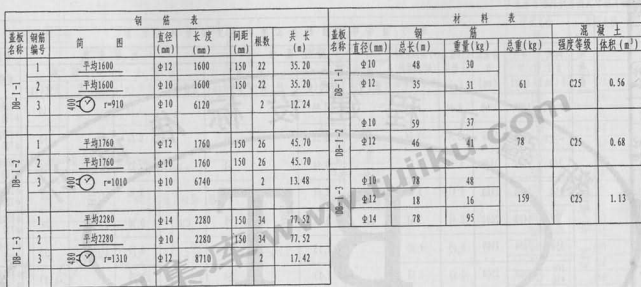 钢筋表
盖板名称 钢筋编号 简图 直径(mm) 长度(mm) 间距(mm) 根数 共长(m)
DB-1-1
1 平均1600 Φ12 1600 150 22 35.20
2 平均1600 Φ10 1600 150 22 35.20
3 400 r=910 Φ10 6120 2 12.24
DB-1-2
1 平均1760 Φ12 1760 150 26 45.70
2 平均1760 Φ10 1760 150 26 45.70
3 400 r=1010 Φ10 6740 2 13.48
DB-1-3
1 平均2280 Φ14 2280 150 34 77.52
2 平均2280 Φ10 2280 150 34 77.52
3 400 r=1310 Φ12 8710 2 17.42
材料表
盖板名称 钢筋 混凝土
直径(mm) 总长(m) 重量(kg) 总重(kg) 强度等级 体积(m³)
DB-1-1
Φ10 48 30
Φ12 35 31
61 C25 0.56
DB-1-2
Φ10 59 37
Φ12 46 41
78 C25 0.68
DB-1-3
Φ10 78 48
Φ12 18 16
Φ14 78 95
159 C25 1.13
图集库 www.tujiku.com